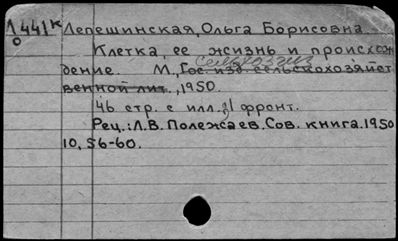 1441к Лепешинская, Ольга Борисовна
0
Клетка, ее жизнь и происхож
дение. М., Гос. изд. сельскохозяйст
Сельхозгиз
венной лит., 1950.
46 стр. с илл. фронт.
Рец.: Л.В. Полежаев. Сов. книга. 1950
10, 56-60.